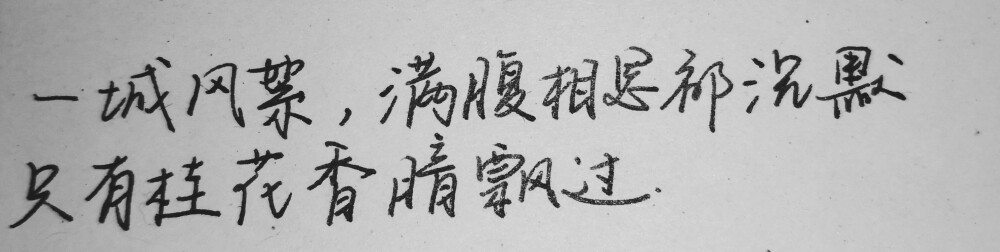 一城风絮，满腹相思都沉默
只有桂花香暗飘过.